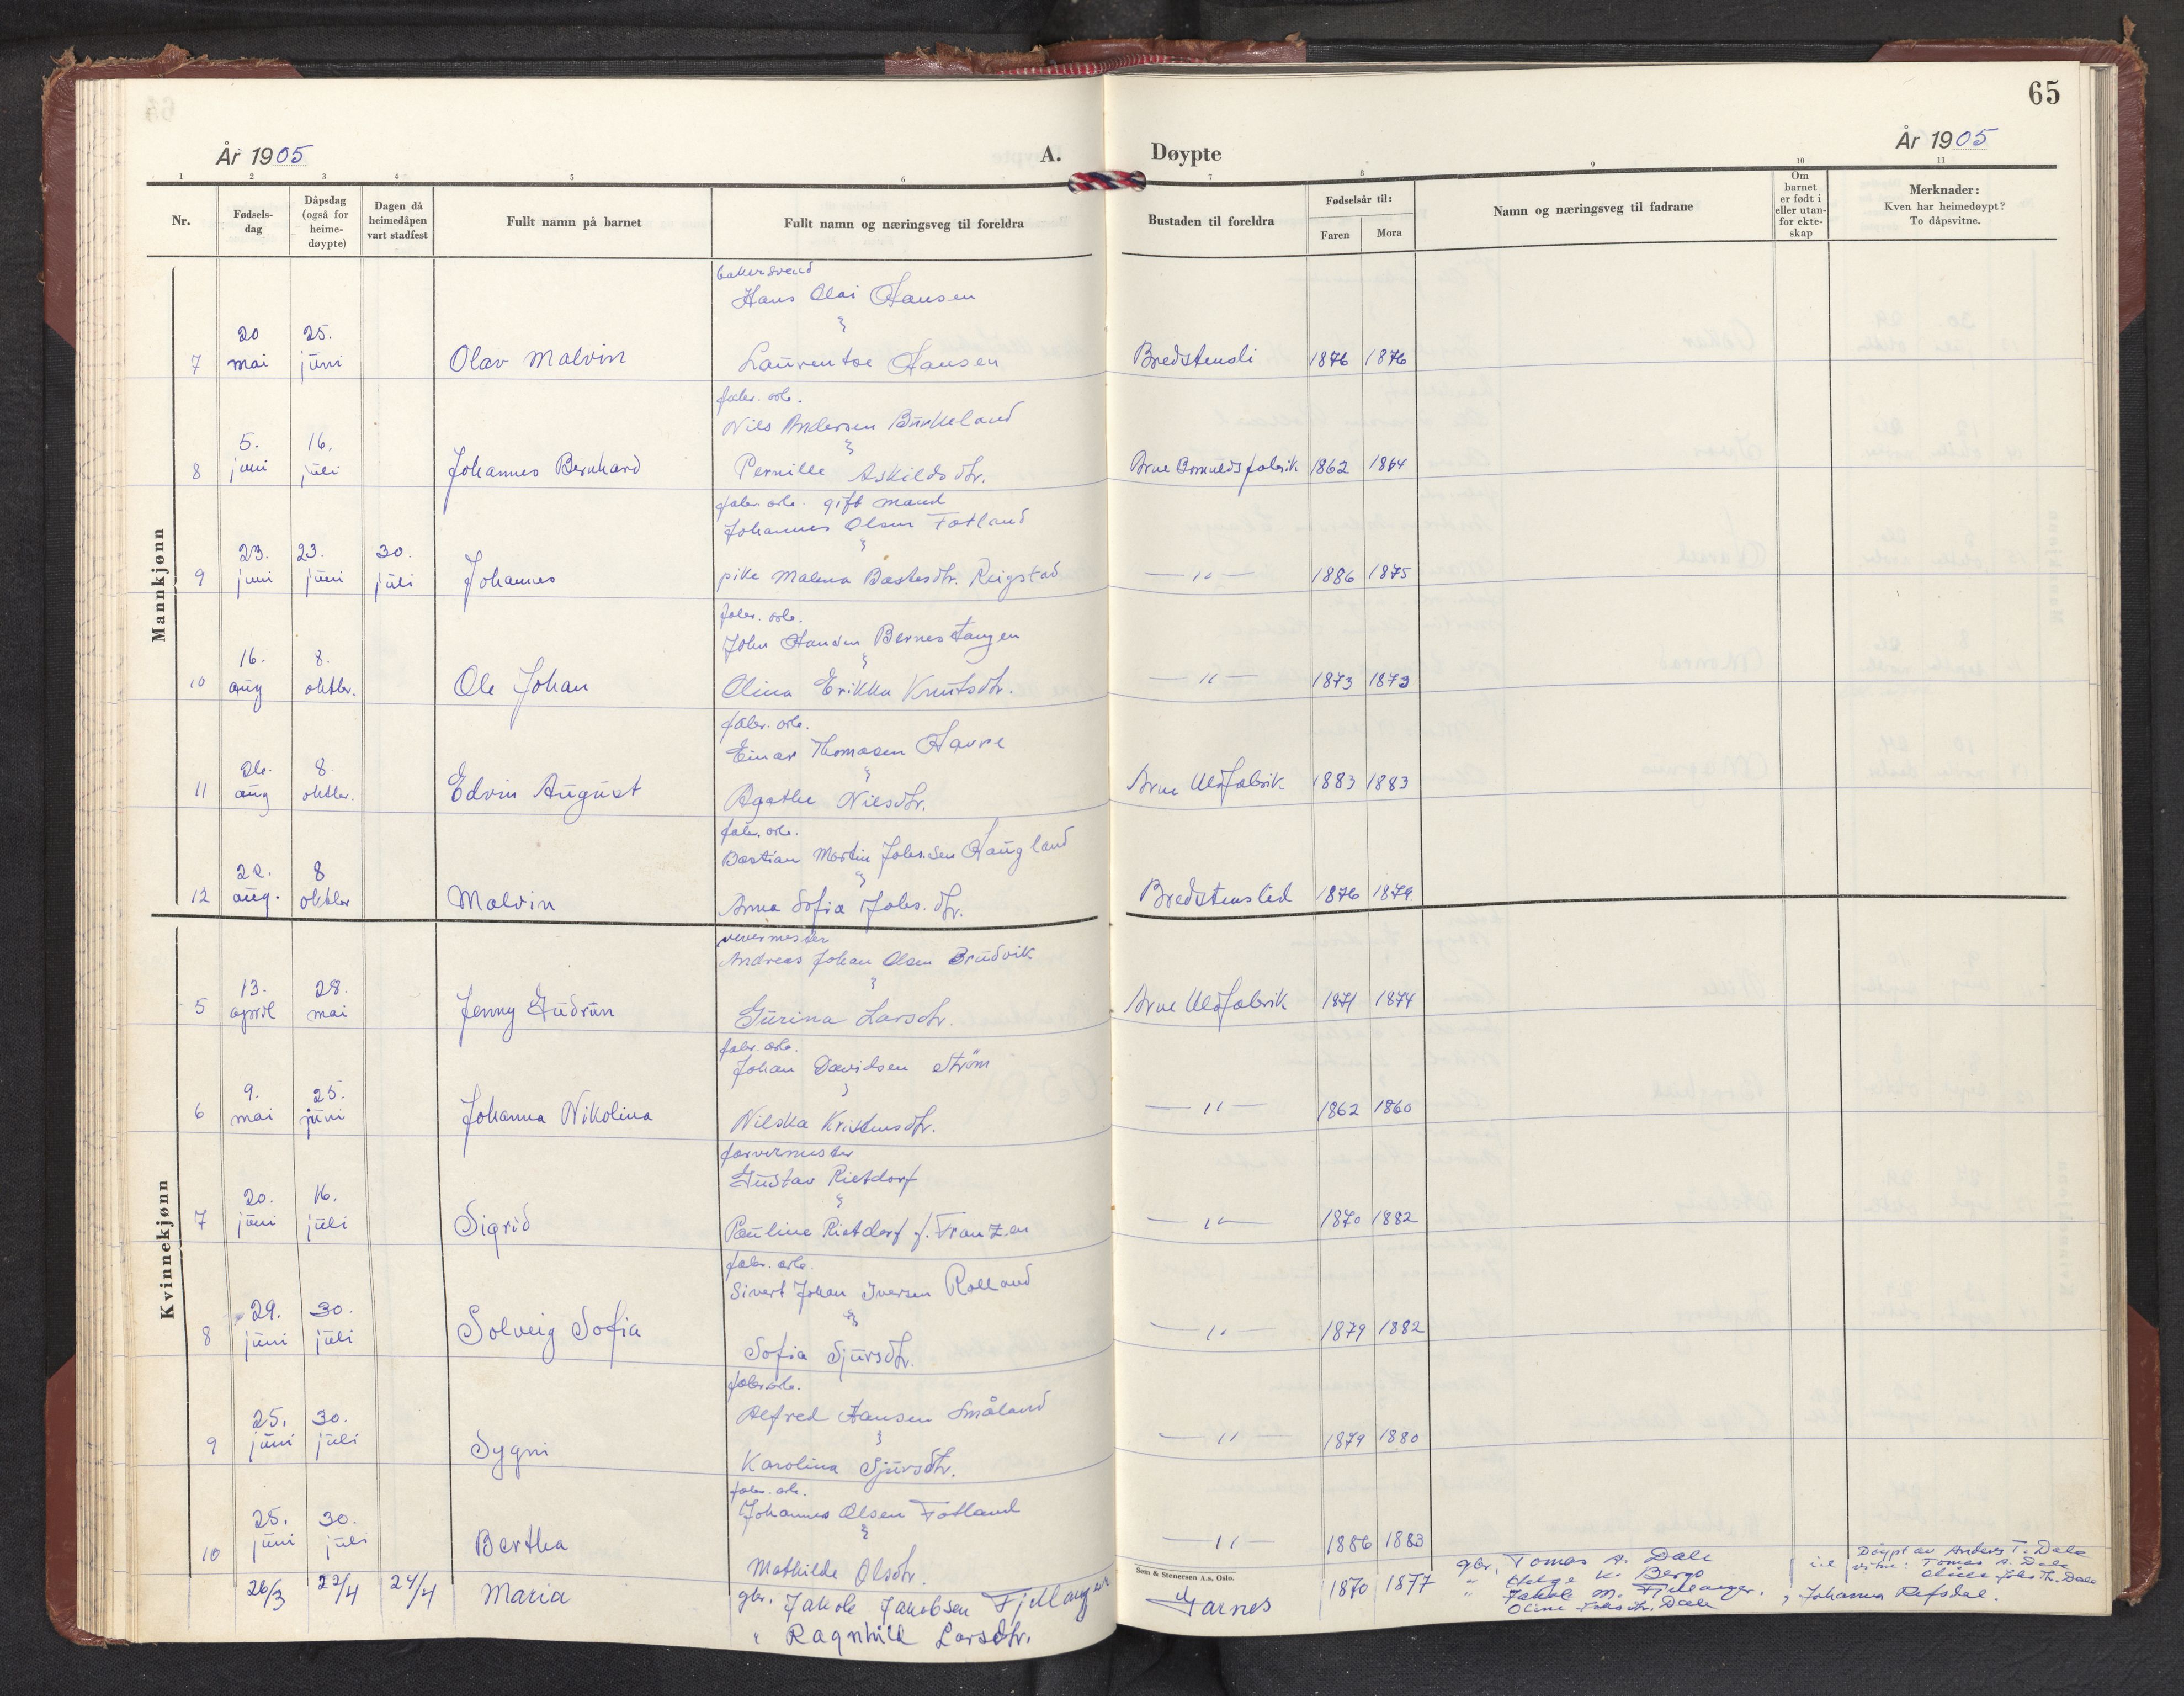 65
År 1905
A.
Døypte
År 1905
1 2 3 4 5 6 7 8 9 10 11
Nr.
Fødsels-
dag
Dåpsdag
(også for
heime-
døypte)
Dagen då
heimedåpen
vart stadfest
Fullt namn på barnet
Fullt namn og næringsveg til foreldra
Bustaden til foreldra
Fødselsår til:
Faren Mora
Namn og næringsveg til fadrane
Om
barnet
er født i
eller utan-
for ekte-
skap
Merknader:
Kven har heimedøypt?
To dåpsvitne.
Mannkjønn
bakersvend
Hans Olai Hansen
20 25.
7 mai juni Olav Malvin Laurentse Hansen Bredstensli 1876 1876
fabr. arb.
Nils Andersen Birkeland
5. 16.
8 juni juli Johannes Bernhard Pernille Askildsdtr. Arne Bomuldsfabrik 1862 1864
fabr. arb. gift mand
Johannes Olsen Fotland
23. 23. 30.
9 juni juni juli Johannes pike Malena Bastesdtr. Reigstad — " — 1886 1875
fabr. arb.
John Hansen Bernestangen
16. 8.
10 aug oktbr. Ole Johan Olina Erikka Knutsdtr. — " — 1873 1873
fabr. arb.
Einar Thomasen Havre
26. 8.
11 aug oktbr. Edvin August Agathe Nilsdtr. Arne Uldfabrik 1883 1883
fabr. arb.
Bastian Martin Johs.sen Haugland
22. 8
12 aug. oktbr Malvin Anna Sofia Johs.dtr. Bredstensled 1876 1879
Kvinnekjønn
vevermester
Andreas Johan Olsen Brudvik
13. 28.
5 april mai Jenny Gudrun Gurina Larsdtr. Arne Uldfabrik 1871 1874
fabr. arb.
Johan Davidsen Strøm
9. 25.
6 mai juni Johanna Nikolina Nilska Kristensdtr. — " — 1862 1860
farvermester
Gustav Rietdorf
20. 16.
7 juni juli Sigrid Pauline Rietdorf f. Franzen — " — 1870 1882
fabr. arb.
Sivert Johan Iversen Rolland
29. 30.
8 juni juli Solveig Sofia Sofia Sjursdtr. — " — 1879 1882
fabr. arb.
Alfred Hansen Småland
25. 30.
9 juni juli Sygni Karolina Sjursdtr. — " — 1879 1880
fabr. arb.
Johannes Olsen Fotland
25. 30.
10 juni juli Bertha Mathilde Olsdtr. — " — 1886 1883
Sem & Stenersen A.s, Oslo.
26/3 22/4 24/4 Maria gbr. Jakob Jakobsen Fjellanger
" Ragnhild Larsdtr.
Garnes 1870 1877
gbr. Tomas A. Dale
" Helge K. Bergo
" Jakob M. Fjellanger.
Oline Johs.dtr. Dale
, Johanna Refsdal.
i.e
Døypt av Anders T. Dale
vitne: Tomas A. Dale